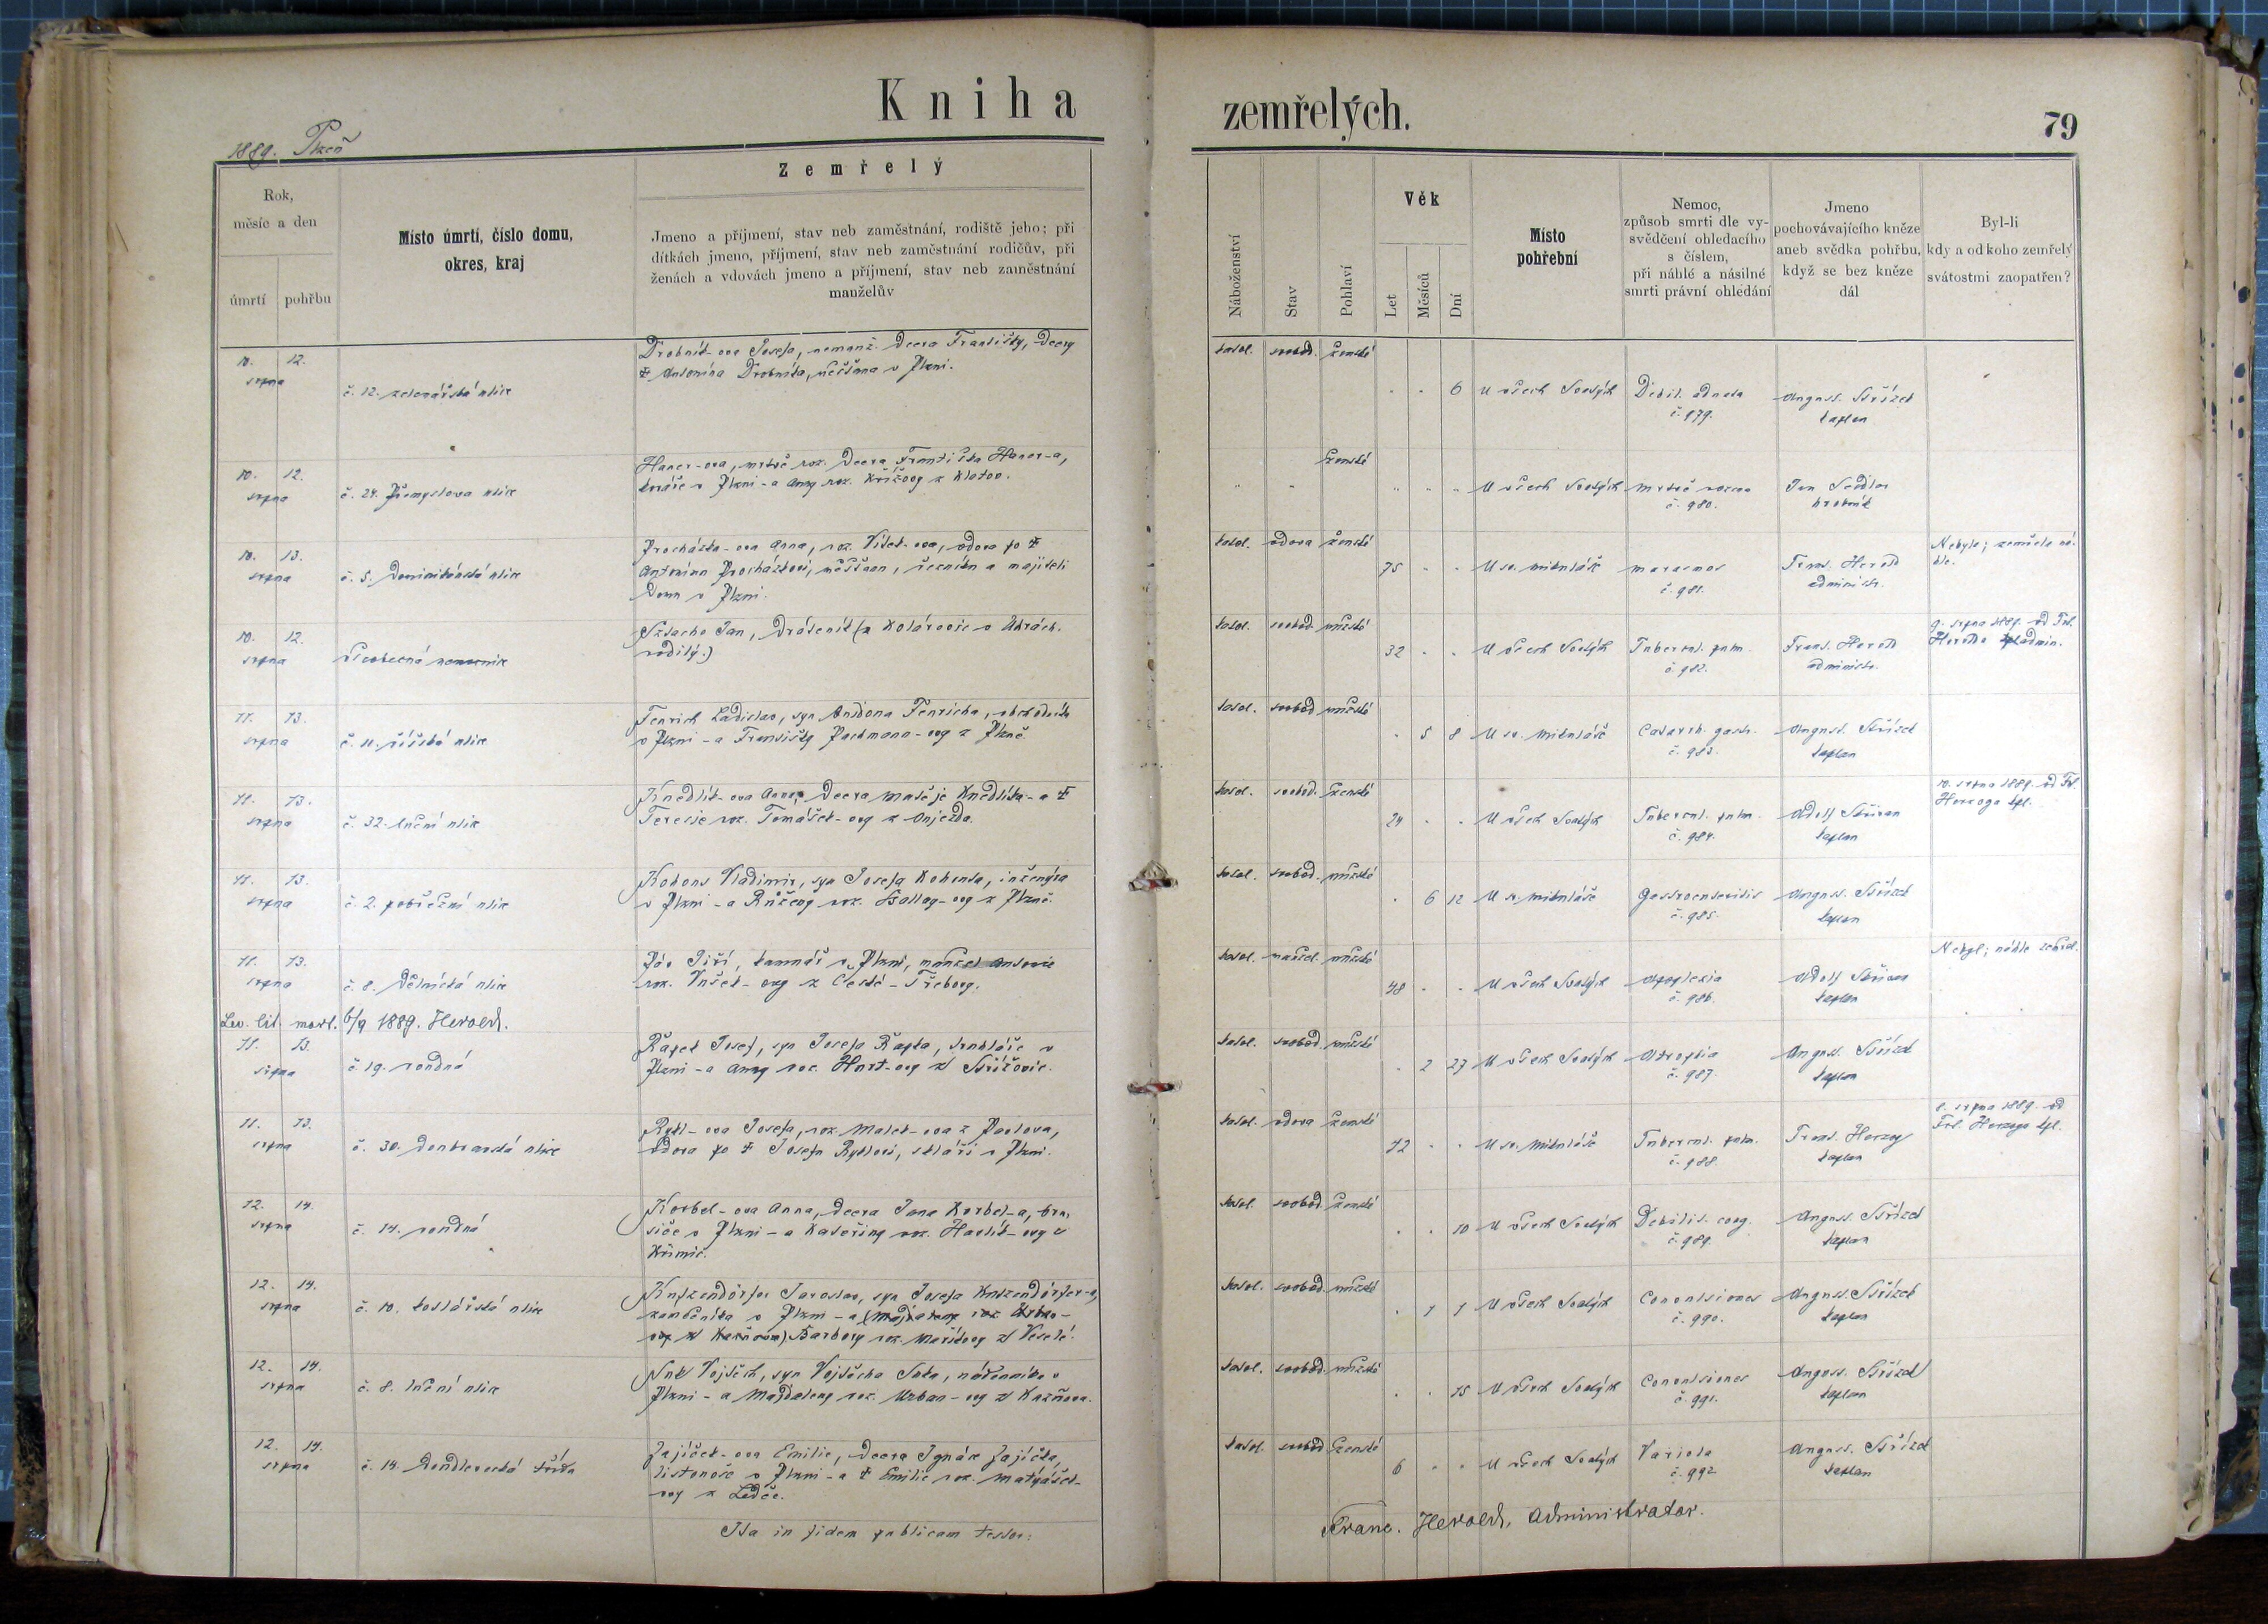 Kniha zemřelých.
79
1889. Plzeň
Zemřelý
Rok,
měsíc a den
úmrtí
pohřbu
Místo úmrtí, číslo domu,
okres, kraj
Jmeno a příjmení, stav neb zaměstnání, rodiště jeho; při
dítkách jmeno, příjmení, stav neb zaměstnání rodičův, při
ženách a vdovách jmeno a příjmení, stav neb zaměstnání
manželův
Náboženství
Stav
Pohlaví
Věk
Let
Měsíců
Dní
Místo
pohřební
Nemoc,
způsob smrti dle vy-
svědčení ohledacího
s číslem,
při náhlé a násilné
smrti právní ohledání
Jmeno
pochovávajícího kněze
aneb svědka pohřbu,
když se bez kněze
dál
Byl-li
kdy a od koho zemřelý
svátostmi zaopatřen?
10. 12.
srpna
č. 12. zelenářská ulice
Drobník-ova Josefa, nemanž. dcera Františky, dcery
† Antonína Drobníka, měšťana v Plzni.
katol. svobod. ženské
6 U všech Svatých Debil. adnata August. Střízek
č. 979. kaplan
10. 12.
srpna
č. 24. Přemyslova ulice
Haner-ova, mrtvě roz. dcera Františka Haner-a,
kováře v Plzni - a Anny roz. Křížovy z Klatov.
ženské
U všech Svatých mrtvě rozená Jan Sedlor
č. 980. hrobník
10. 13.
srpna
č. 5. Dominikánská ulice
Procházka-ova Anna, roz. Vísek-ova, vdova po †
Antonínu Procházkovi, měšťanu, řezníku a majiteli
domu v Plzni.
katol. vdova ženské
75 U sv. Mikuláše marasmus Franc. Herold
č. 981. administr.
Nebyla; zemřela ná-
hle.
10. 12.
srpna
Všeobecná nemocnice
Sztacho Jan, dráteník (z Kolárovic v Uhrách.
rodilý.)
katol. svobod. mužské
32 U všech Svatých Tubercul. pulm. Franc. Herold
č. 982. administr.
9. srpna 1889. od Frt.
Herolda admin.
11. 13.
srpna
č. 11. říšská ulice
Fenrich Ladislav, syn Antona Fenricha, obchodníka
v Plzni - a Františky Pachmann-ovy z Plzně.
katol. svobod. mužské
5 8 U sv. Mikuláše Catarrh. gastr. August. Střízek
č. 983. kaplan
11. 13.
srpna
č. 32. luční ulice
Knedlík-ova Anna, dcera Matěje Knedlíka - a †
Terezie roz. Tomášek-ovy z Onjezda.
katol. svobod. ženské
24 U všech Svatých Tubercul. pulm. Adolf Skřivan
č. 984. kaplan
10. srpna 1889. od Frt.
Herzoga kpl.
11. 13.
srpna
č. 2. pobřežní ulice
Kohons Vladimír, syn Josefa Kohonsa, inženýra
v Plzni - a Růženy roz. Ballag-ovy z Plzně.
katol. svobod. mužské
6 12 U sv. Mikuláše Gastroenteritis August. Střízek
č. 985. kaplan
11. 13.
srpna
č. 8. Dělnická ulice
Páv Jiří, kamnář v Plzni, manžel Antonie
roz. Vnšek-ovy z České-Třebovy.
katol. ženat. mužské
48 U všech Svatých Apoplexia Adolf Skřivan
č. 986. kaplan
Nebyl; náhle zemřel.
Lev. lit. mort. 6/9 1889. Herold.
11. 13.
srpna
č. 19. vondná
Řapek Josef, syn Josefa Řapka, truhláře v
Plzni - a Anny roz. Hart-ovy z Střížovic.
katol. svobod. mužské
2 27 U všech Svatých Atrophia August. Střízek
č. 987. kaplan
11. 13.
srpna
č. 30. Doubravská ulice
Rykl-ova Josefa, roz. Malek-ova z Pavlova,
vdova po † Josefu Ryklovi, sklaři v Plzni.
katol. vdova ženské
72 U sv. Mikuláše Tubercul. pulm. Franc. Herzog
č. 988. kaplan
8. srpna 1889. od
Frt. Herzoga kpl.
12. 14.
srpna
č. 14. vondná
Korbel-ova Anna, dcera Jana Korbel-a, bru-
siče v Plzni - a Kateřiny roz. Havlík-ovy z
Křimic.
katol. svobod. ženské
10 U všech Svatých Debilit. cong. August. Střízek
č. 989. kaplan
12. 14.
srpna
č. 10. kotlářská ulice
Knpzendörfer Jaroslav, syn Josefa Knpzendörfer-a,
zámečníka v Plzni - a (Majdaleny roz. Urban-
ovy z Kazňova) Barbory roz. Maříkovy z Veselé.
katol. svobod. mužské
1 1 U všech Svatých Convulsiones August. Střízek
č. 990. kaplan
12. 14.
srpna
č. 8. luční ulice
Suk Vojtěch, syn Vojtěcha Suka, nádenníka v
Plzni - a Majdaleny roz. Urban-ovy z Kazňova.
katol. svobod. mužské
15 U všech Svatých Convulsiones August. Střízek
č. 991. kaplan
12. 14.
srpna
č. 14. Doudlevecká třída
Zajíček-ova Emilie, dcera Ignáce Zajíčka,
listonoše v Plzni - a † Emilie roz. Matyášek-
ovy z Ledče.
katol. svobod. ženské
6 U všech Svatých Variola August. Střízek
č. 992 kaplan
Ita in fidem publicam testor:
Franc. Herold, Administrator.